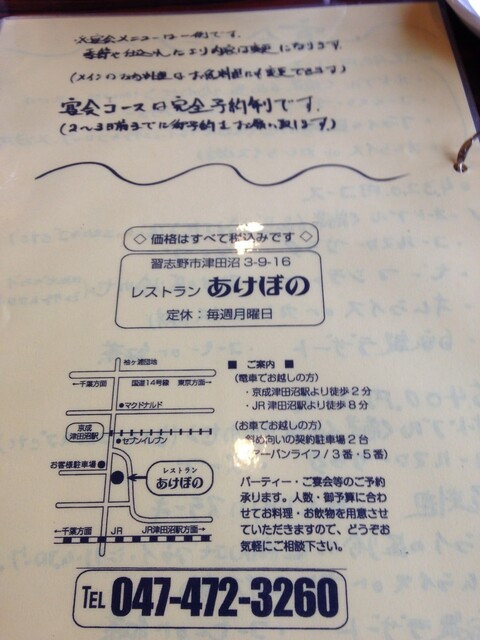 ※宴会メニューは一例です。
季節や仕込みにより内容は変更になります。
(メインのお肉料理はお魚料理にも変更できます)
宴会コースは完全予約制です。
(2〜3日前までに御予約をお願い致します)
◇ 価格はすべて税込みです ◇
習志野市津田沼3-9-16
レストラン あけぼの
定休：毎週月曜日
袖ヶ浦団地
←千葉方面 国道14号線 東京方面→
マクドナルド
京成
津田沼駅
セブンイレブン
お客様駐車場
レストラン
あけぼの
←千葉方面 JR JR津田沼駅方面→
■ ご案内 ■
(電車でお越しの方)
・京成津田沼駅より徒歩2分
・JR津田沼駅より徒歩8分
(お車でお越しの方)
・斜め向いの契約駐車場2台
アーバンライフ/3番・5番)
パーティー・ご宴会等のご予約
承ります。人数・御予算に合わ
せてお料理・お飲物を用意させ
ていただきますので、どうぞお
気軽にご相談下さい。
TEL 047-472-3260